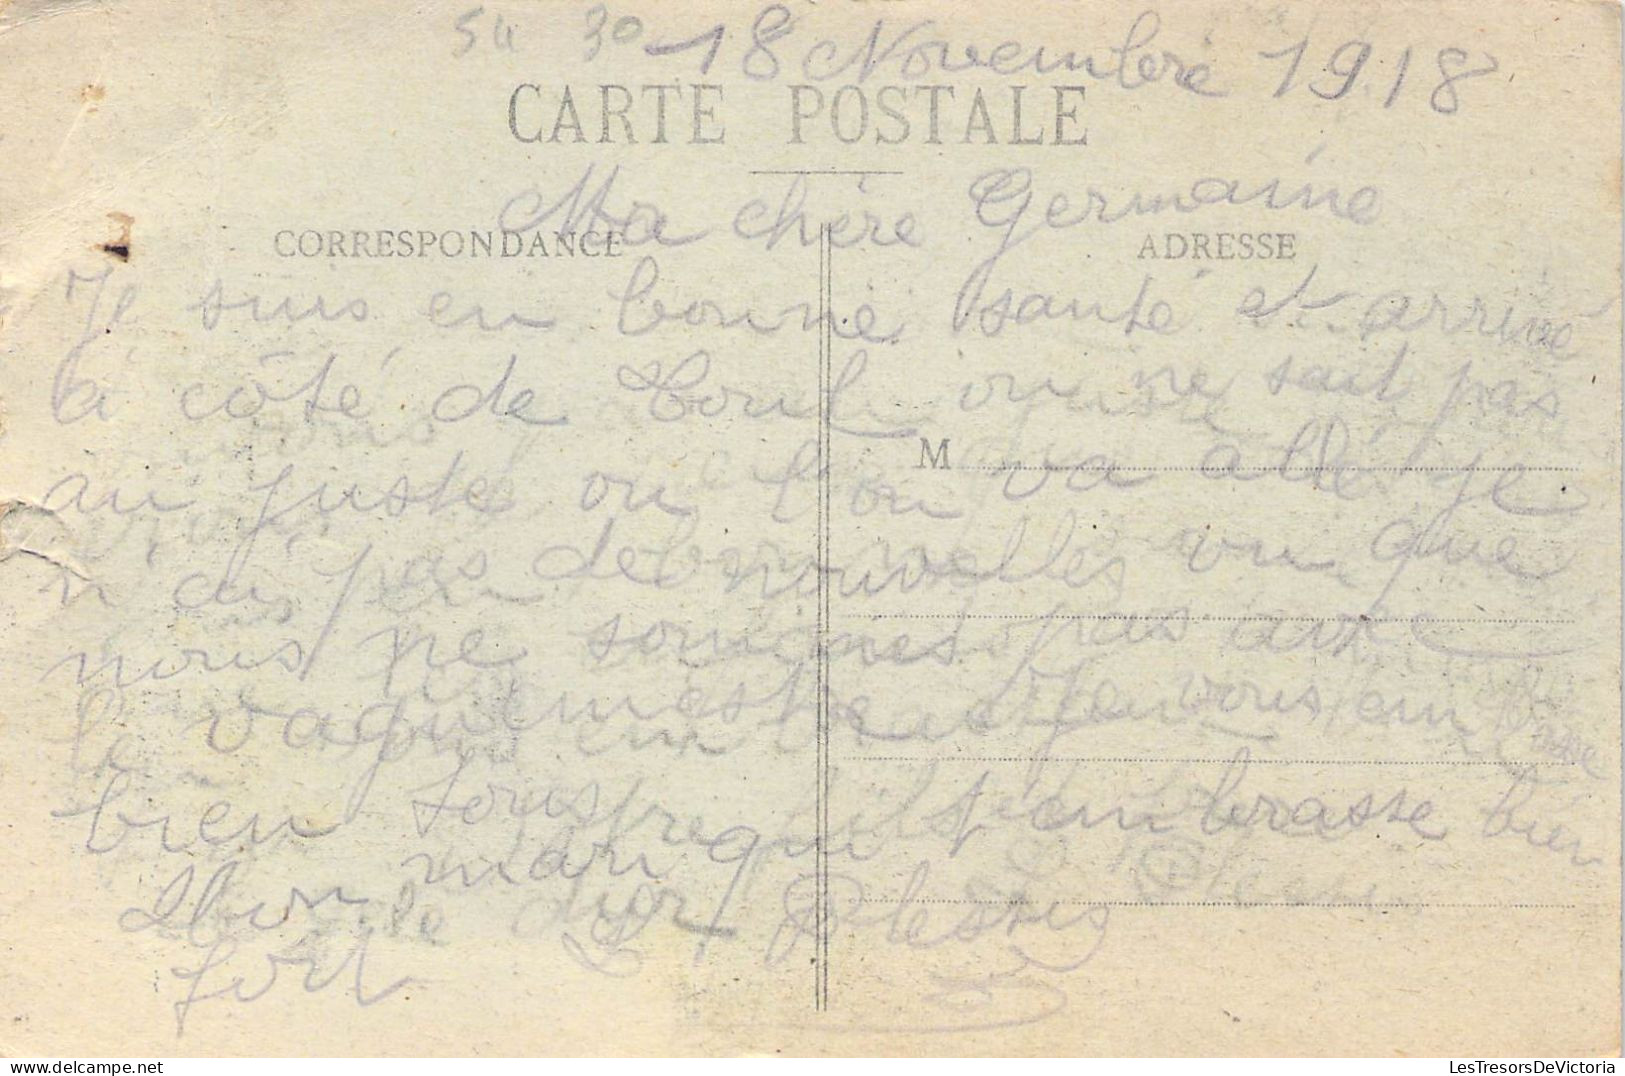 54 30
18 Novembre 1918
CARTE POSTALE
Ma chère Germaine
CORRESPONDANCE
ADRESSE
Je suis en bonne santé et arrivé
à côté de Toul on ne sait pas
M
au juste ou l'on va allé je
n'ai pas de nouvelles vu que
nous ne sommes pas avec
le vaguemestre Je vous embrasse
bien tous qu'il t'embrasse bien
Ton mari
fort Plessis
LesTresorsDeVictoria